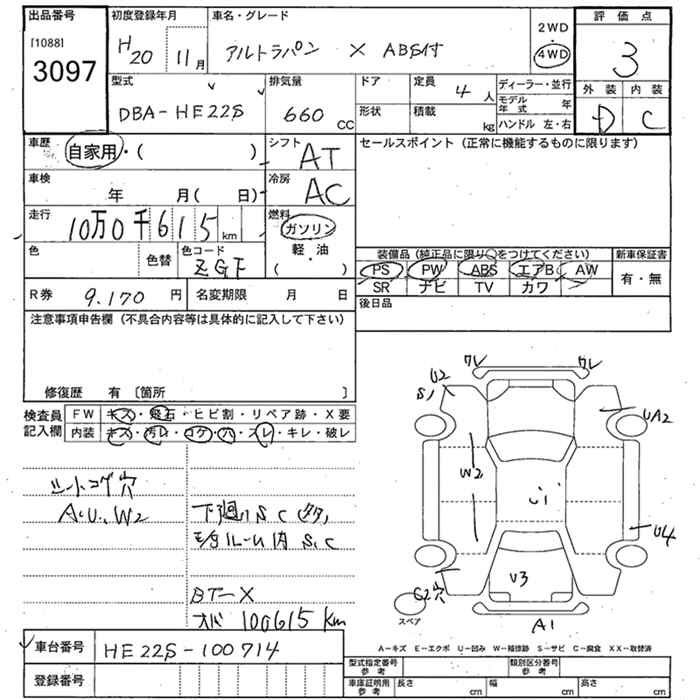 出品番号
[1088]
3097
初度登録年月
H20 11月
車名・グレード
アルトラパン X ABS付
2WD
4WD
評価点
3
外装 内装
D C
型式
DBA-HE22S
排気量
660 CC
ドア
形状
定員
4人
積載
kg
ディーラー・並行
モデル年式 年
ハンドル 左・右
車歴
自家用・( )
シフト
AT
セールスポイント (正常に機能するものに限ります)
車検
年 月( 日)
冷房
AC
走行
10万0千615km
燃料
ガソリン
軽・油
( )
色
色替
色コード
ZGF
装備品 (純正品に限り○をつけてください)
新車保証書
PS PW ABS エアB AW
SR ナビ TV カワ
有・無
R券
9.170 円
名変期限 月 日
後日品
注意事項申告欄 (不具合内容等は具体的に記入して下さい)
修復歴 有 [箇所 ]
検査員記入欄
FW キズ・飛石・ヒビ割・リペア跡・X要
内装 キズ・汚レ・コゲ・ハ・スレ・キレ・破レ
シートコゲ穴
A.U.、W2
下廻りSC
ルーム内 S.C
100615 km
ワレ
ワレ
U2
S1
UA2
W2
U1
U4
U3
C2穴
A1
スペア
A-キズ E-エクボ U-凹み W-補修跡 S-サビ C-腐食 XX-取替済
車台番号
HE22S-100714
登録番号
型式指定番号 参考
類別区分番号 参考
車庫証明用 参考
長さ cm
幅 cm
高さ cm